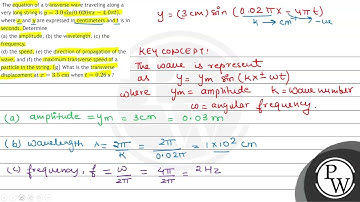 The equation of a transverse wave traveling along a
very long string is y = 3.0 sin(0.020πx - 4.0πt),
where x and y are expressed in centimeters and t is in
seconds. Determine
(a) the amplitude, (b) the wavelength, (c) the
frequency,
(d) the speed, (e) the direction of propagation of the
wave, and (f) the maximum transverse speed of a
particle in the string. (g) What is the transverse
displacement at x = 3.5 cm when t = 0.26 s?
y = (3 cm) sin (0.02πx - 4πt)
k → cm⁻¹ -ve
KEY CONCEPT:
The wave is represent
as y = ym sin (kx ± ωt)
where ym = amplitude k = wave number
ω = angular frequency.
(a) amplitude = ym = 3cm = 0.03 m
(b) wavelength λ = 2π/k = 2π/0.02π = 1×10² cm
(c) frequency, f = ω/2π = 4π/2π = 2 Hz
PW